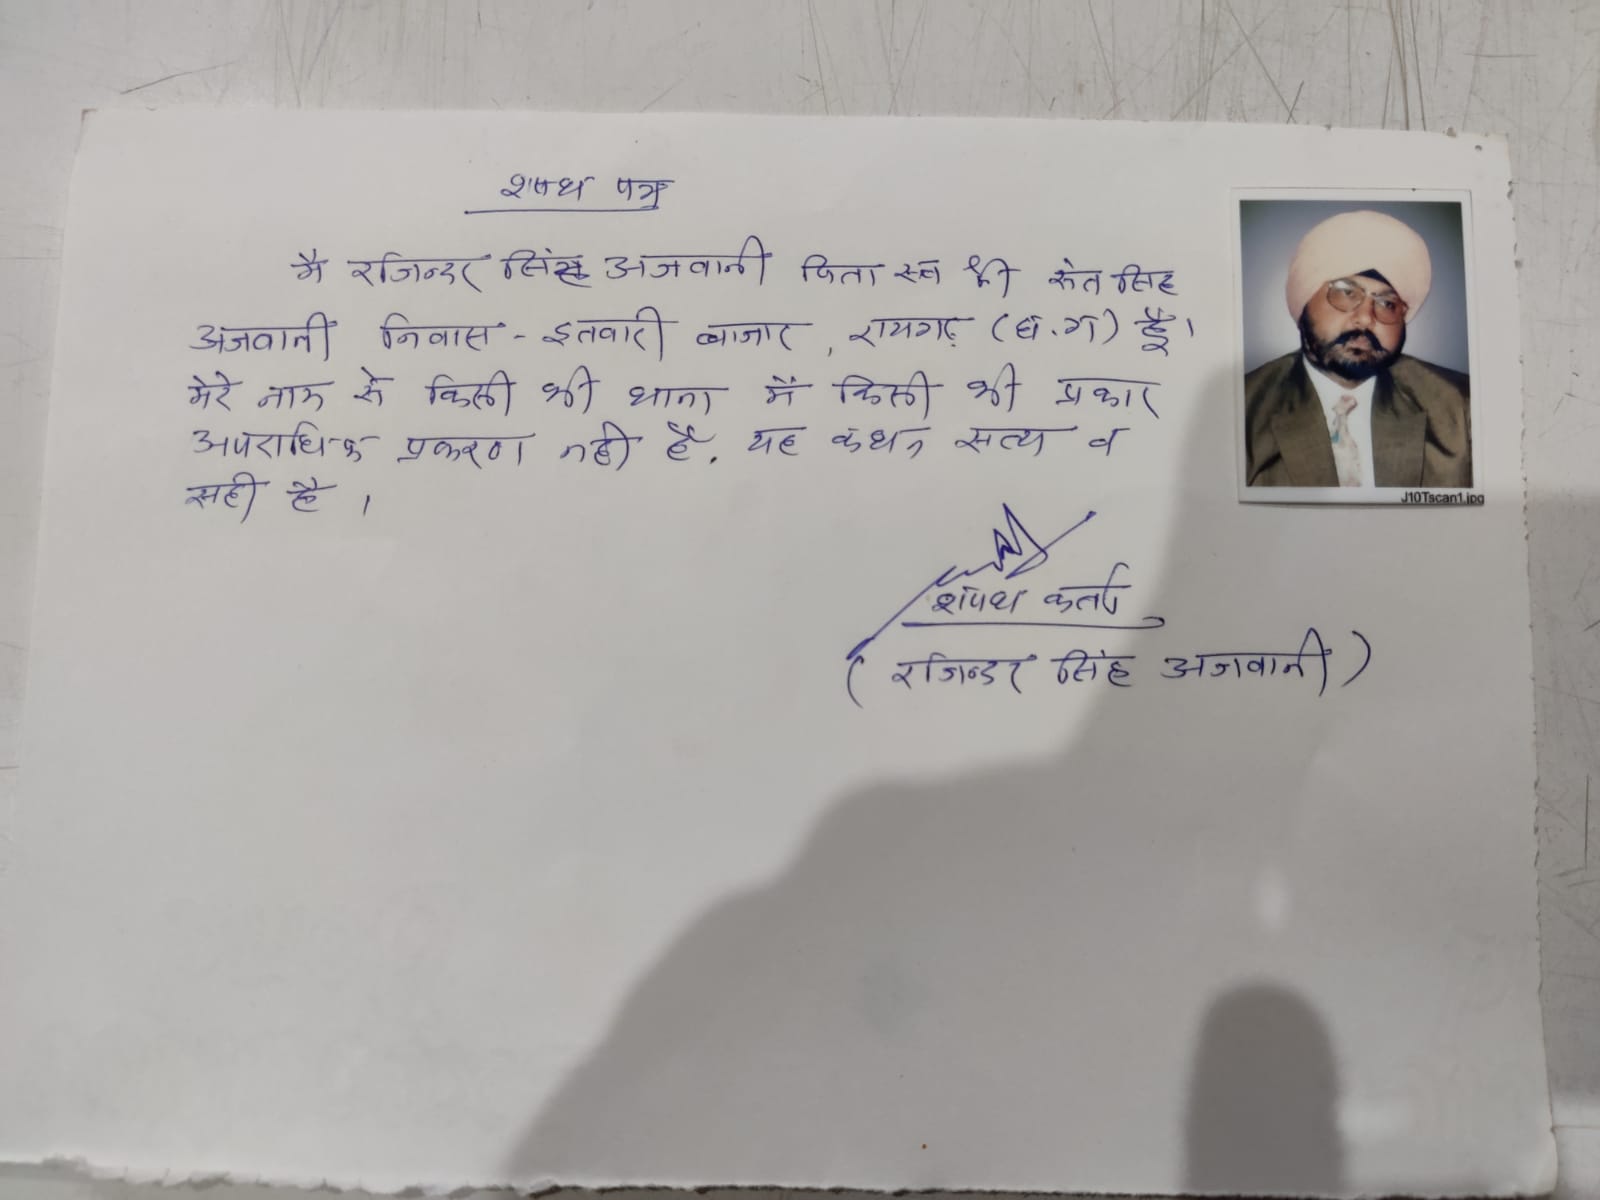 शपथ पत्र
मै रजिन्दर सिंह अजवानी पिता स्व श्री संत सिंह
अजवानी निवास - इतवारी बाजार, रायगढ़ (छ.ग) हूँ।
मेरे नाम से किसी भी थाना में किसी भी प्रकार
अपराधिक प्रकरण नही है. यह कथन सत्य व
सही है ।
शपथ कर्ता
( रजिन्डर सिंह अजवानी )
J10Tscan1.jpg